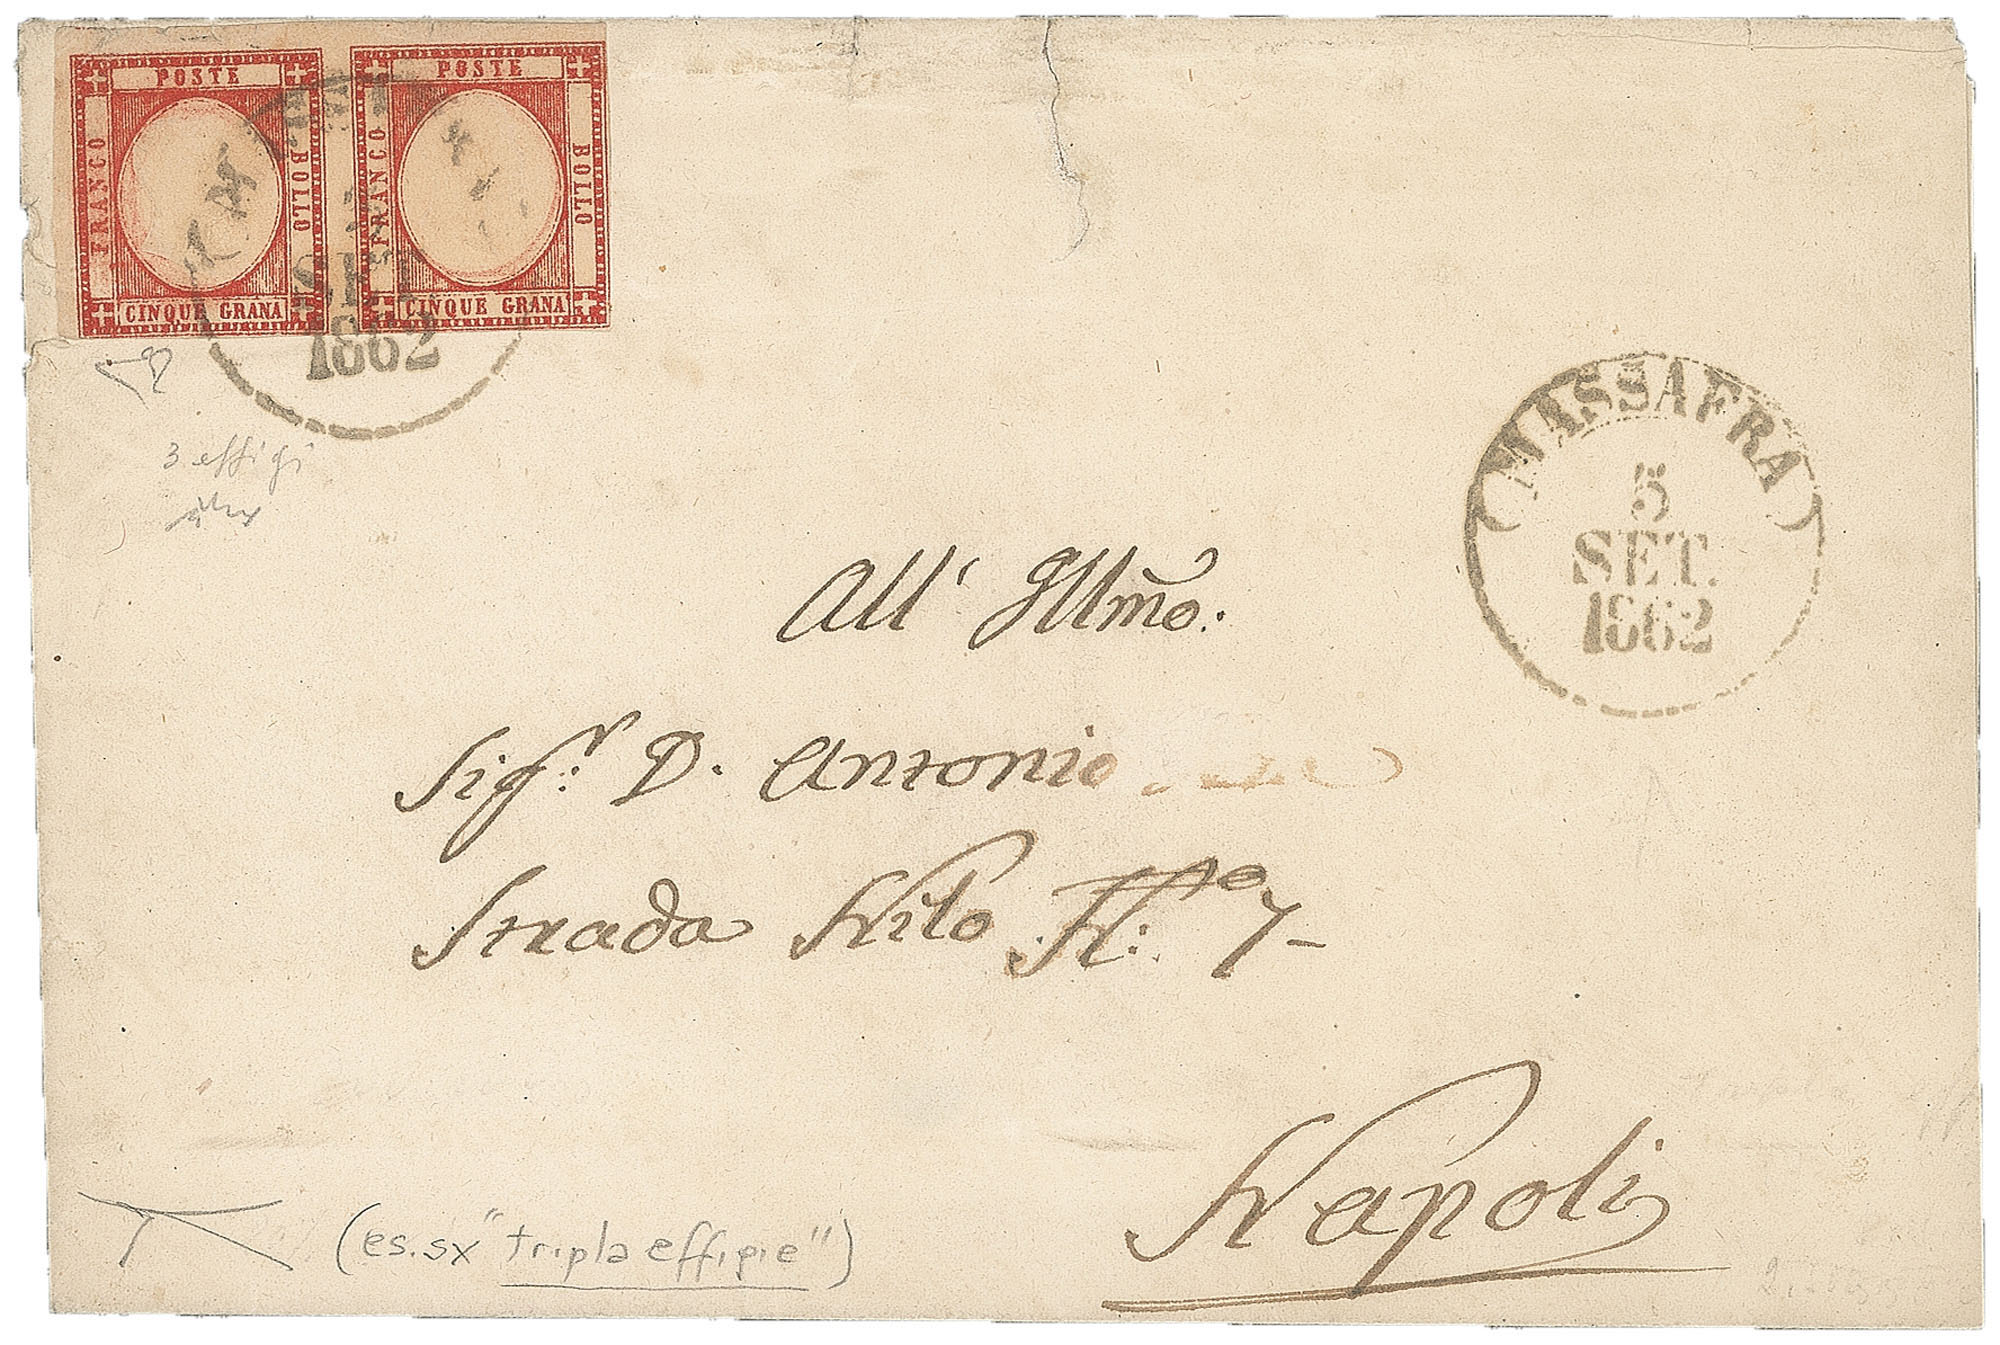 POSTE
FRANCO
BOLLO
CINQUE GRANA
POSTE
FRANCO
BOLLO
CINQUE GRANA
SET
1862
3 effigi
MASSAFRA
5
SET.
1862
All' Illmo:
Sigr: D. Antonio
Strada Nilo No: 7-
Napoli
(es. sx "tripla effigie")